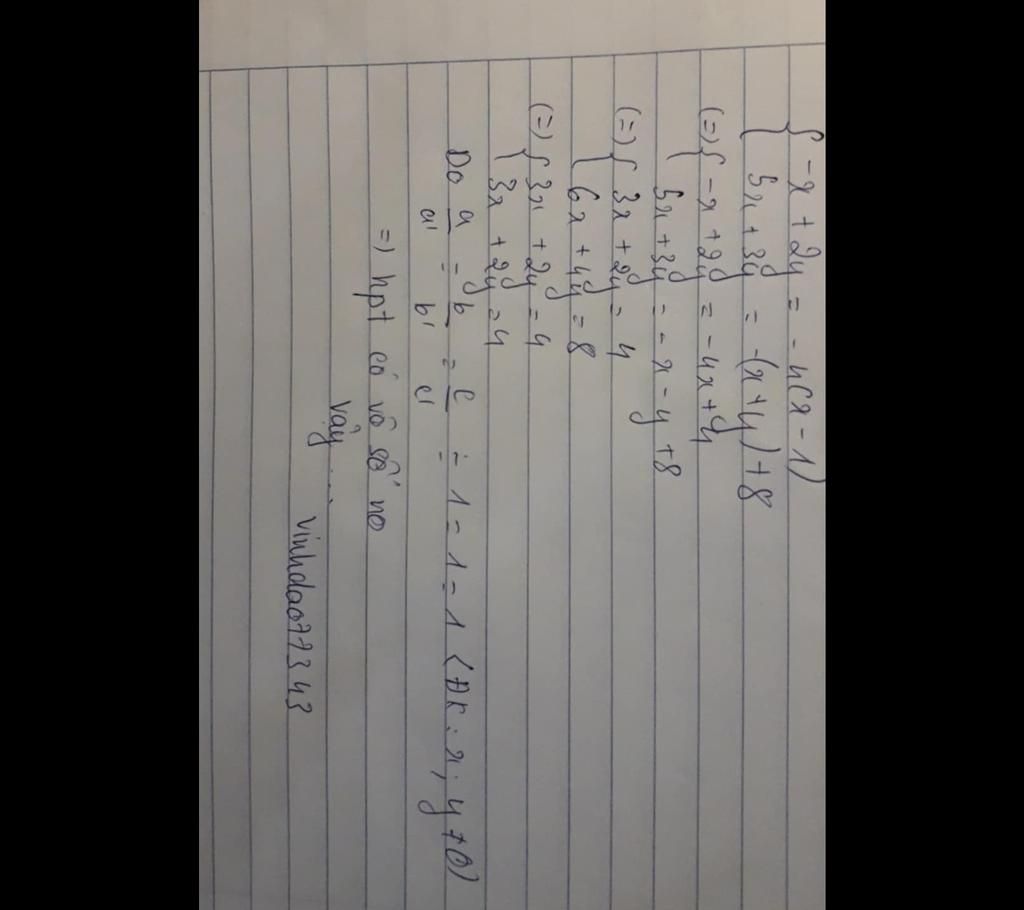 { -x + 2y = -4(x - 1)
{ 5x + 3y = -(x + y) + 8
(=) { -x + 2y = -4x + 4
{ 5x + 3y = -x - y + 8
(=) { 3x + 2y = 4
{ 6x + 4y = 8
(=) { 3x + 2y = 4
{ 3x + 2y = 4
Do a/a' = b/b' = c/c' = 1 = 1 = 1 (ĐK: x; y ≠ 0)
=) hpt có vô số no
Vậy ...
vinhdao077343